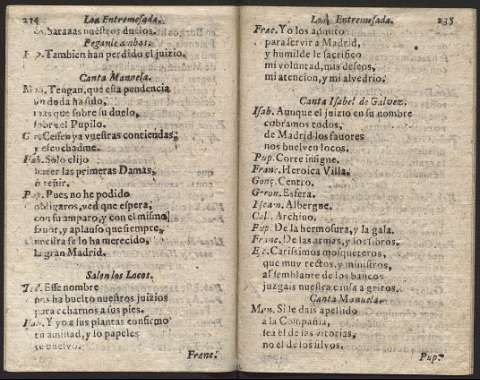 214 Loa Entremesada.
nuestros duelos.
Peganse ambos.
Tambien han perdido el juizio.
Canta Manuela.
Tengan, que esta pendencia
no duda ha sido,
mas que sobre su duelo,
sobre el Pupilo.
Cessen ya vuestras contiendas,
y escuchadme.
Fab. Solo elijo
hazer las primeras Damas,
ò reñir.
Pues no he podido
obligaros, ved que espera,
con su amparo, y con el mismo
fauor, y aplauso que siempre,
nuestra se lo ha merecido,
la gran Madrid.
Salen los Locos.
Esse nombre
nos ha buelto nuestros juizios
para echarnos a sus pies.
Y yo a sus plantas confirmo
tu amistad, y lo papeles
te buelvo.
Franc.
Loa Entremesada. 235
Franc. Yo los admito
para servir a Madrid,
y humilde le sacrifico
mi voluntad, mis deseos,
mi atencion, y mi alvedrio.
Canta Isabel de Galvez.
Isab. Aunque el juizio en su nombre
cobramos todos,
de Madrid los fauores
nos buelven locos.
Pup. Corte insigne.
Franc. Heroica Villa.
Gonç. Centro.
Geron. Esfera.
Albergue.
Archivo.
Pup. De la hermosura, y la gala.
Franc. De las armas, y los libros.
Carissimos mosqueteros,
que muy rectos, y ministros,
al semblante de los bancos
juzgais nuestra causa a gritos.
Canta Manuela.
Man. Si le dais apellido
a la Compañia,
sea el de las vitorias,
no el de los silvos.
Pup.